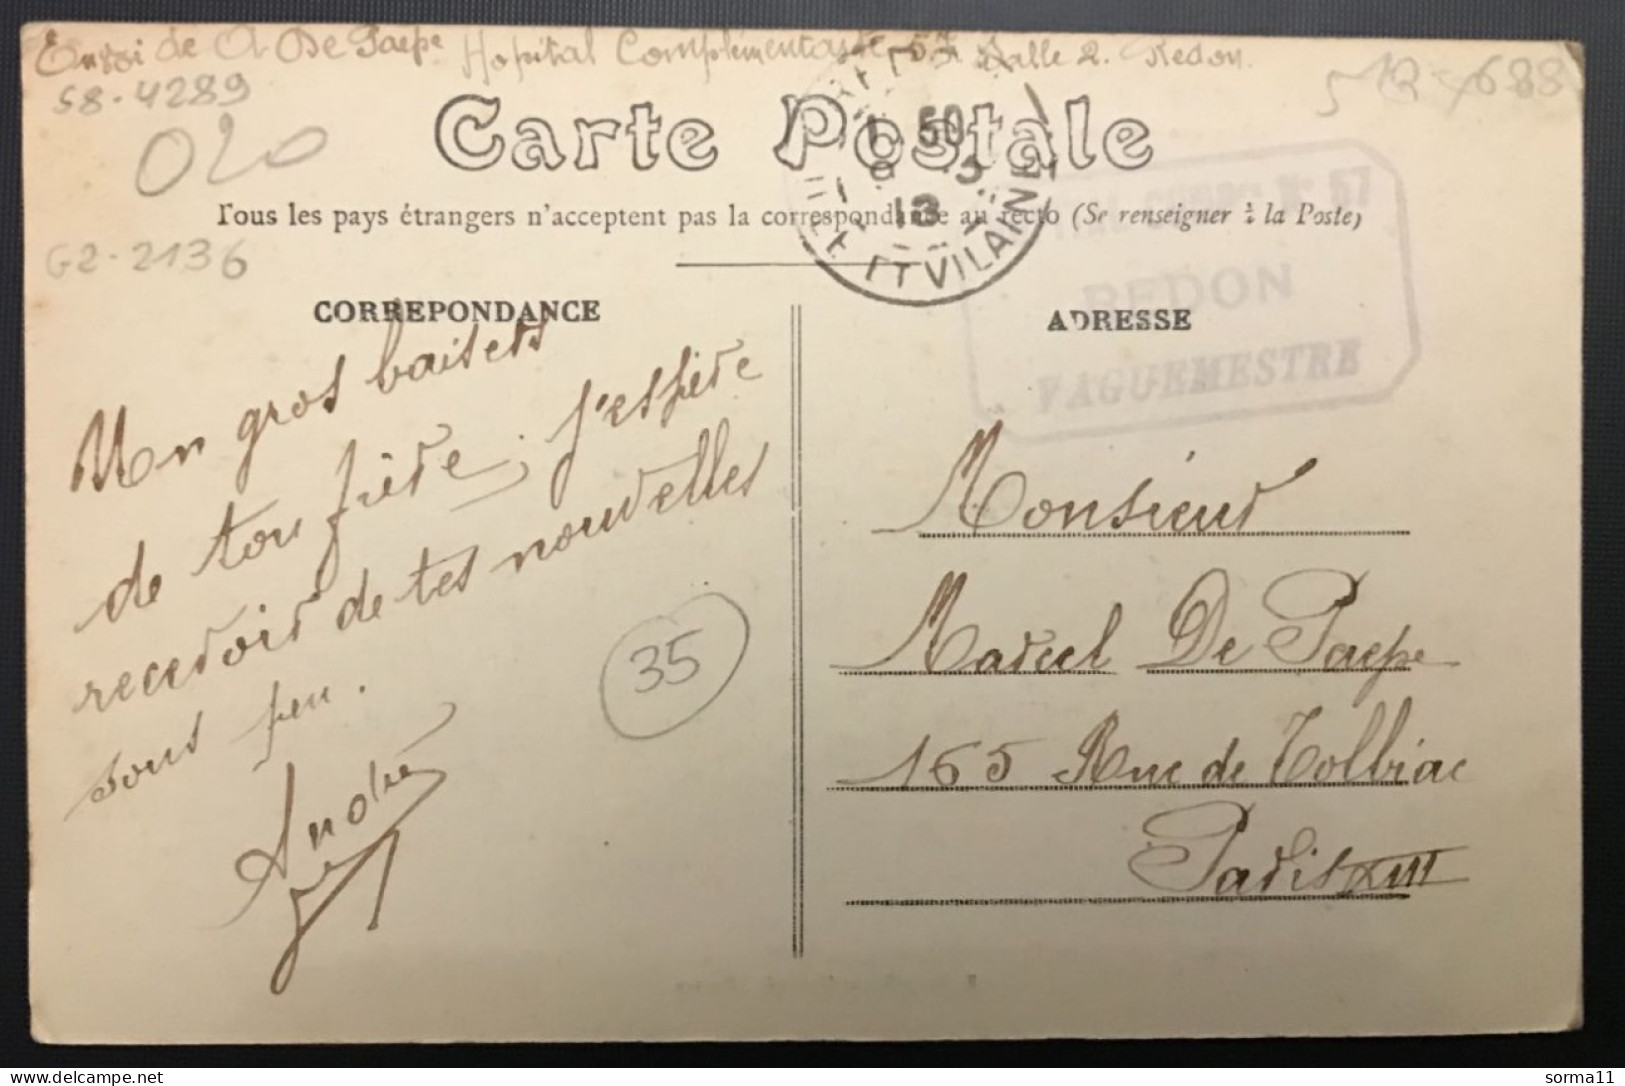 Envoi de A De Paepe Hopital Complémentaire 57 Salle 2. Redon
58-4289
020
G2-2136
Carte Postale
Tous les pays étrangers n'acceptent pas la correspondance au recto (Se renseigner à la Poste)
ILLE ET VILAINE
50
13
N° 57
REDON
VAGUEMESTRE
CORREPONDANCE
Mon gros baisers
de ton frère, j'espère
recevoir de tes nouvelles
sous peu.
André
35
ADRESSE
Monsieur
Marcel De Paepe
165 Rue de Tolbiac
Paris XIII
sorma11